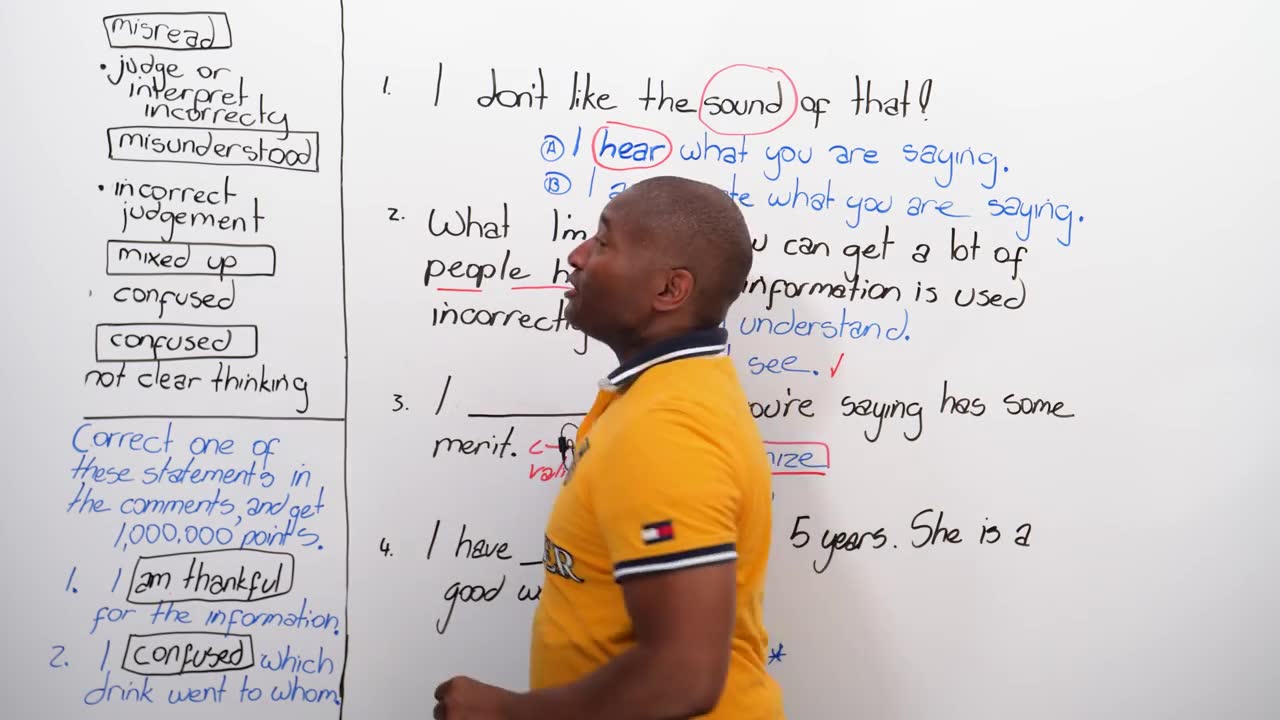 misread
• judge or
interpret
incorrecty
misunderstood
• incorrect
judgement
mixed up
confused
confused
not clear thinking
Correct one of
these statements in
the comments, and get
1,000,000 points.
1. I am thankful
for the information.
2. I confused which
drink went to whom.
1. I don't like the sound of that!
A I hear what you are saying.
B I what you are saying.
2. What I'm can get a lot of
people information is used
understand.
see. ✓
3. I ________ you're saying has some
merit.
4. I have 5 years. She is a
good
*